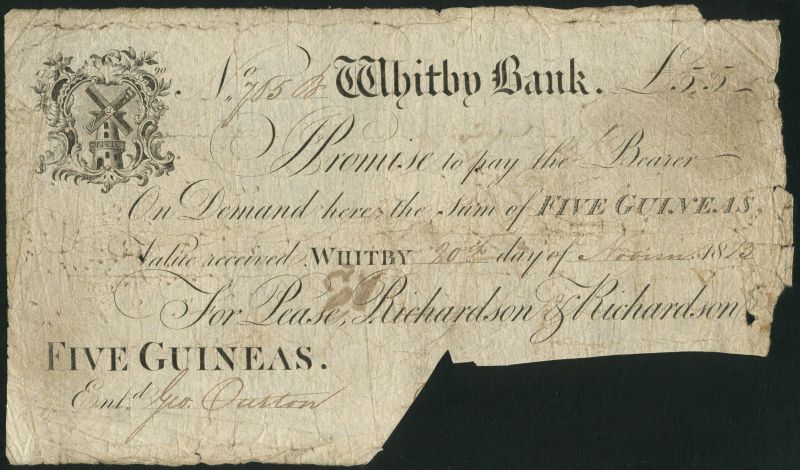 No. 765 Whitby Bank. £5,,5–
I Promise to pay the Bearer
On Demand here, the Sum of FIVE GUINEAS,
Value received WHITBY 20th day of 18
For Pease, Richardson & Richardson
FIVE GUINEAS.
Entd. Geo.